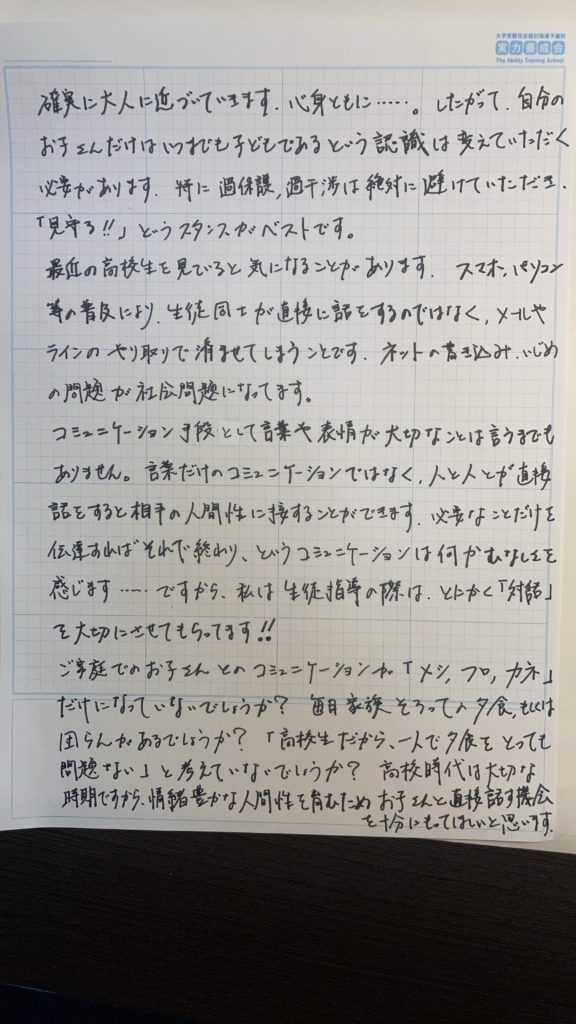 大学受験完全個別指導予備校
実力養成会
The Ability Training School
確実に大人に近づいていきます．心身ともに……。したがって．自分の
お子さんだけはいつまでも子どもであるという認識は変えていただく
必要があります．特に過保護，過干渉は絶対に避けていただき．
「見守る!!」というスタンスがベストです。
最近の高校生を見ていると気になることがあります．スマホ．パソコン
等の普及により．生徒同士が直接に話をするのではなく，メールや
ラインのやり取りで済ませてしまうことです．ネットの書き込み．いじめ
の問題が社会問題になってます。
コミュニケーション手段として言葉や表情が大切なことは言うまでも
ありません。言葉だけのコミュニケーションではなく，人と人とが直接
話をすると相手の人間性に接することができます．必要なことだけを
伝達すればそれで終わり、というコミュニケーションは何かむなしさを
感じます……ですから、私は生徒指導の際は．とにかく「対話」
を大切にさせてもらってます!!
ご家庭でのお子さんとのコミュニケーションが「メシ，フロ，カネ」
だけになっていないでしょうか？ 毎日家族そろっての夕食，もしくは
団らんがあるでしょうか？「高校生だから、一人で夕食をとっても
問題ない」と考えていないでしょうか？ 高校時代は大切な
時期ですから，情緒豊かな人間性を育むためお子さんと直接話す機会
を十分にもってほしいと思います．